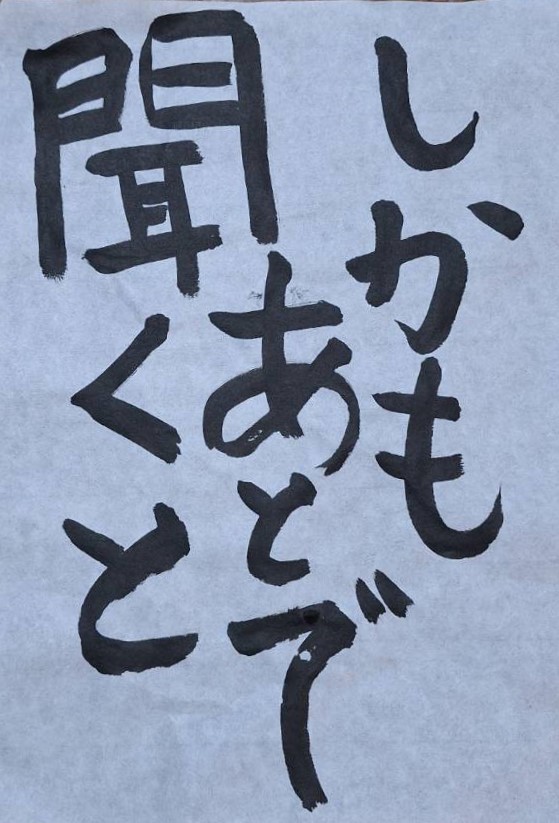 しかも
あとで
聞くと